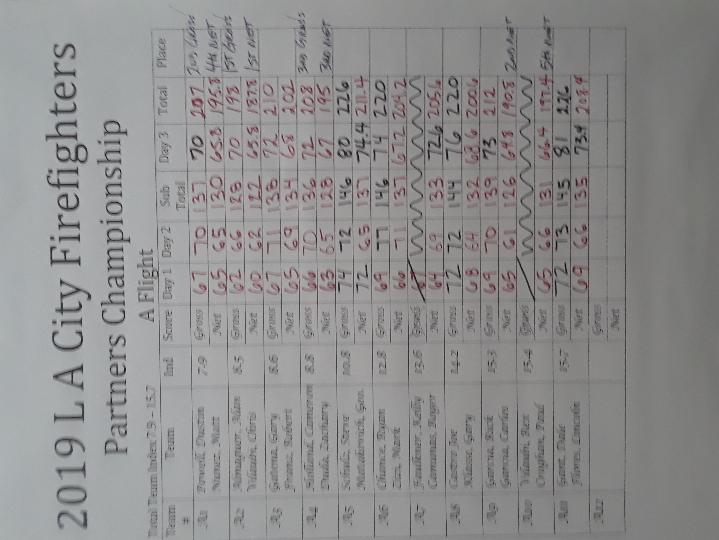 2019 L A City Firefighters
Partners Championship
A Flight
Total Team Index 7.9 - 15.7
Team # Team Ind Score Day 1 Day 2 Sub Total Day 3 Total Place
A1 Powell, Dustin 7.9 Gross 67 70 137 70 207 2nd Gross
Nunez, Matt Net 65 65 130 65.8 195.8 4th Net
A2 Adam 8.5 Gross 62 66 128 70 198 1st Gross
Chris Net 60 62 122 65.8 187.8 1st Net
A3 Gary 8.6 Gross 67 71 138 72 210
Robert Net 65 69 134 68 202
A4 Holland, Cameron 8.8 Gross 66 70 136 72 208 3rd Gross
Zachary Net 63 65 128 67 195 3rd Net
A5 Schulz, Steve 10.8 Gross 74 72 146 80 226
Geo. Net 72 65 137 74.4 211.4
A6 Chance, Ryan 12.8 Gross 69 77 146 74 220
Mark Net 66 71 137 67.2 204.2
A7 Kelly 13.6 Gross
Roger Net 64 69 133 72.6 205.6
A8 Castro Joe 14.2 Gross 72 72 144 76 220
Klause, Gary Net 68 64 132 68.6 200.6
A9 Garcia, Rick 15.3 Gross 69 70 139 73 212
Garcia, Carlos Net 65 61 126 64.8 190.8 2nd Net
A10 Rex 15.4 Gross
Paul Net 65 66 131 66.4 197.4 5th Net
A11 Gent, Dale 15.7 Gross 72 73 145 81 226
Flores, Lincoln Net 69 66 135 73.4 208.4
A12 Gross
Net